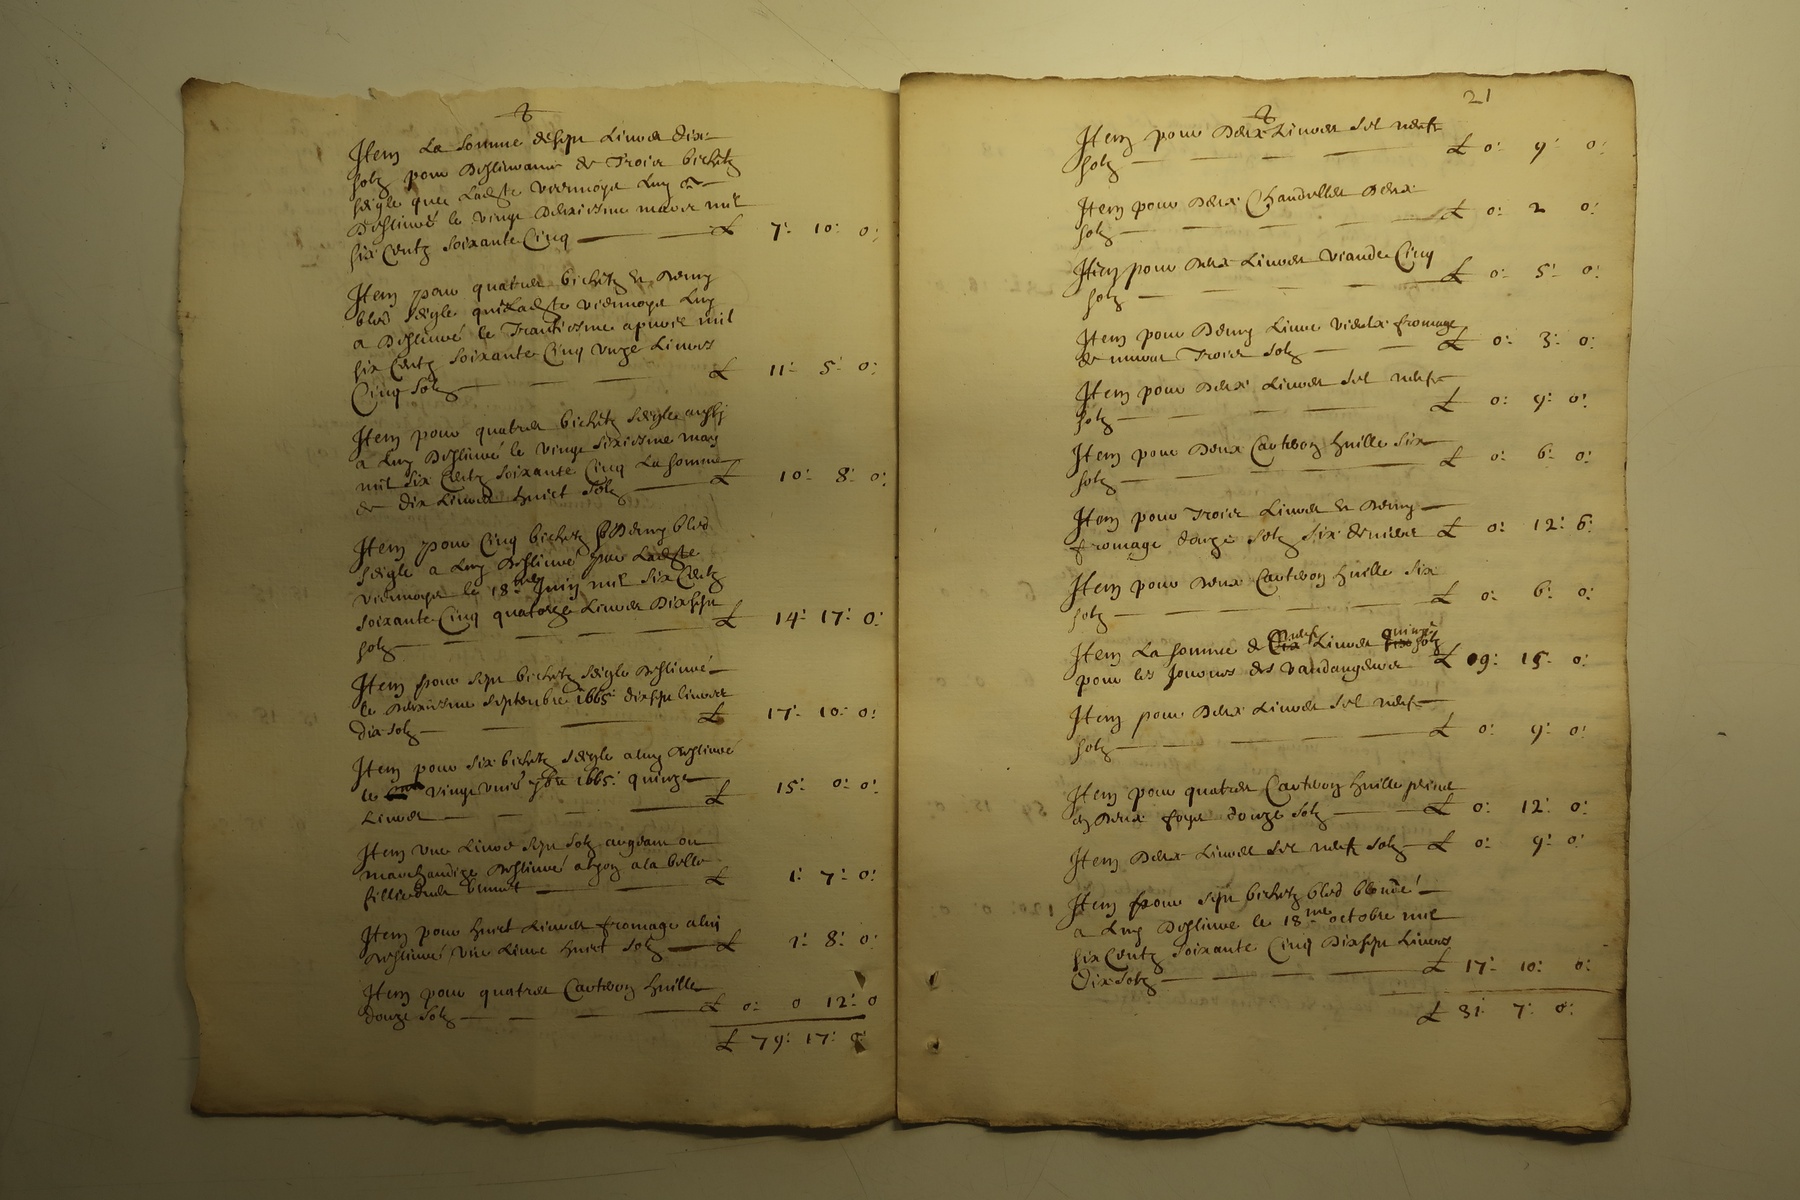 Item La somme de sept Livres dix
solz pour deslivrance de Trois bichetz
seigle que Ladte viennoise Luy a
deslivré le vingt deuxiesme mars mil
six Centz soixante Cinq — £ 7: 10: 0:
Item pour quatres bichetz et demy
bled seigle que Ladte viennoise Luy
a deslivré le Trantiesme apvril mil
six Centz soixante Cinq unze Livres
Cinq solz — £ 11: 5: 0:
Item pour quatres bichetz seigle aussy
a Luy deslivré le vingt sixiesme may
mil six Centz soixante Cinq La somme
de dix Livres huict solz — £ 10: 8: 0:
Item pour Cinq bichetz et demy bled
seigle a Luy deslivré par Ladte
viennoise le 18me Juin mil six Centz
soixante Cinq quatorze Livres dixsept
solz — £ 14: 17: 0:
Item pour sept bichetz seigle deslivré
le deuxiesme septembre 1665 dixsept livres
dix solz — £ 17: 10: 0:
Item pour six bichetz seigle a luy deslivré
le vingt 7bre 1665: quinze
Livres — £ 15: 0: 0:
Item une Livre sept solz
marchandise deslivré a la belle
fillie — £ 1: 7: 0:
Item pour huict Livres fromage a luy
deslivré une Livre huict solz — £ 1: 8: 0:
Item pour quatres Carteron huille
douze solz — £ 0: 0 12: 0
£ 79: 17: 0:
21
Item pour deux Livres sel neufz
solz — £ 0: 9: 0:
Item pour deux Chandelles deux
solz — £ 0: 2 0:
Item pour deux Livres viande Cinq
solz — £ 0: 5: 0:
Item pour demy Livre vieulx fromage
de Trois solz — £ 0: 3: 0:
Item pour deux Livres sel neufz
solz — £ 0: 9: 0:
Item pour deux Carteron huille six
solz — £ 0: 6: 0:
Item pour Trois Livres et demy
fromage douze solz six deniers £ 0: 12: 6:
Item pour deux Carteron huille six
solz — £ 0: 6: 0:
Item La somme de neufz Livres quinze solz
pour les Journes des vandangeurs £ 09: 15: 0:
Item pour deux Livres sel neufz
solz — £ 0: 9: 0:
Item pour quatres Carteron huille prinse
en deux foys douze solz — £ 0: 12: 0:
Item deux Livres sel neufz solz — £ 0: 9: 0:
Item pour sept bichetz bled
a Luy deslivré le 18me octobre mil
six Centz soixante Cinq dixsept Livres
Dix solz — £ 17: 10: 0:
£ 31: 7: 0: